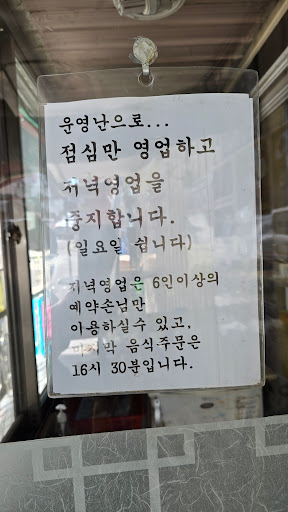 운영난으로...
점심만 영업하고
저녁영업을
중지합니다.
(일요일 쉽니다)
저녁영업은 6인이상의
예약손님만
이용하실수 있고,
마지막 음식주문은
16시 30분입니다.